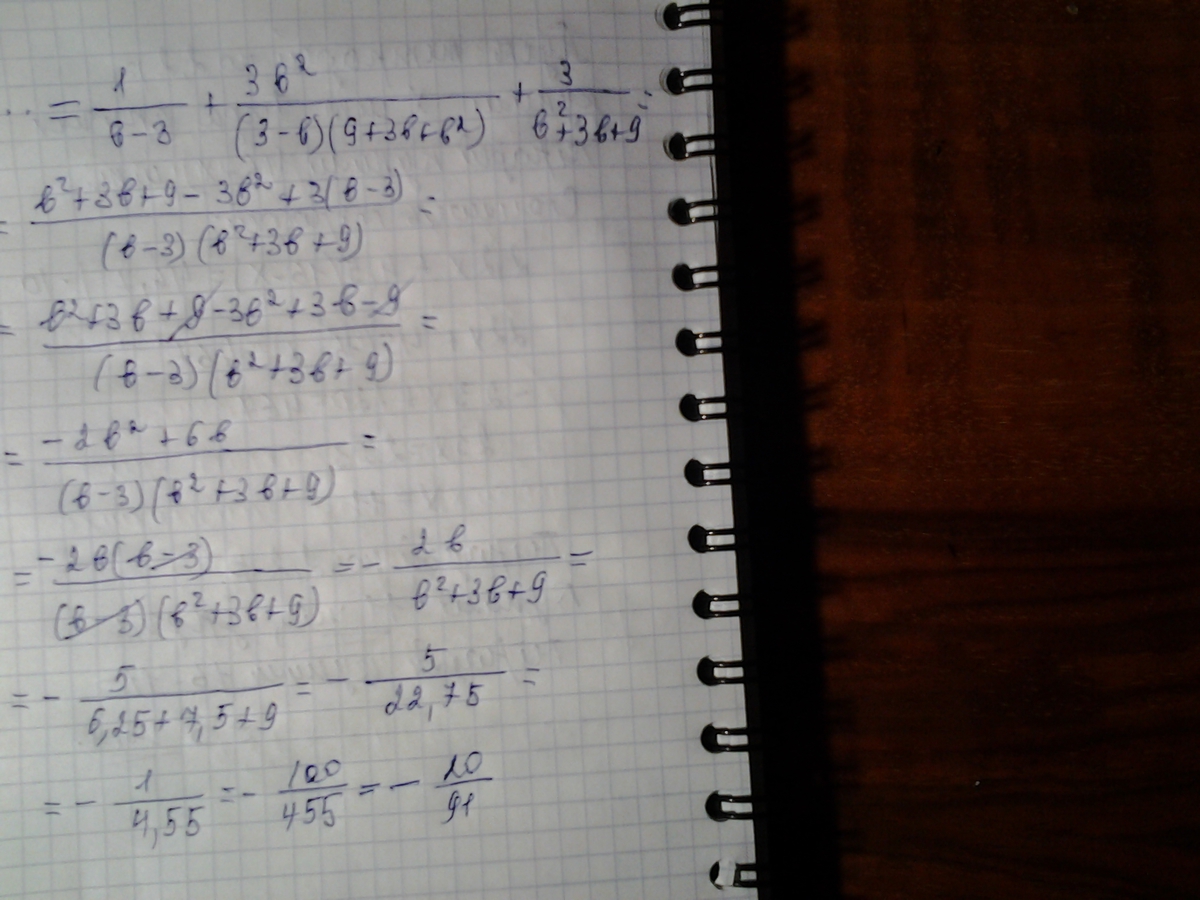 ... = 1/(в-3) + 3в²/((3-в)(9+3в+в²)) + 3/(в²+3в+9) =
= (в²+3в+9-3в²+3(в-3))/((в-3)(в²+3в+9)) =
= (в²+3в+9-3в²+3в-9)/((в-3)(в²+3в+9)) =
= (-2в²+6в)/((в-3)(в²+3в+9)) =
= (-2в(в-3))/((в-3)(в²+3в+9)) = - 2в/(в²+3в+9) =
= - 5/(6,25+7,5+9) = - 5/22,75 =
= - 1/4,55 = - 100/455 = - 20/91